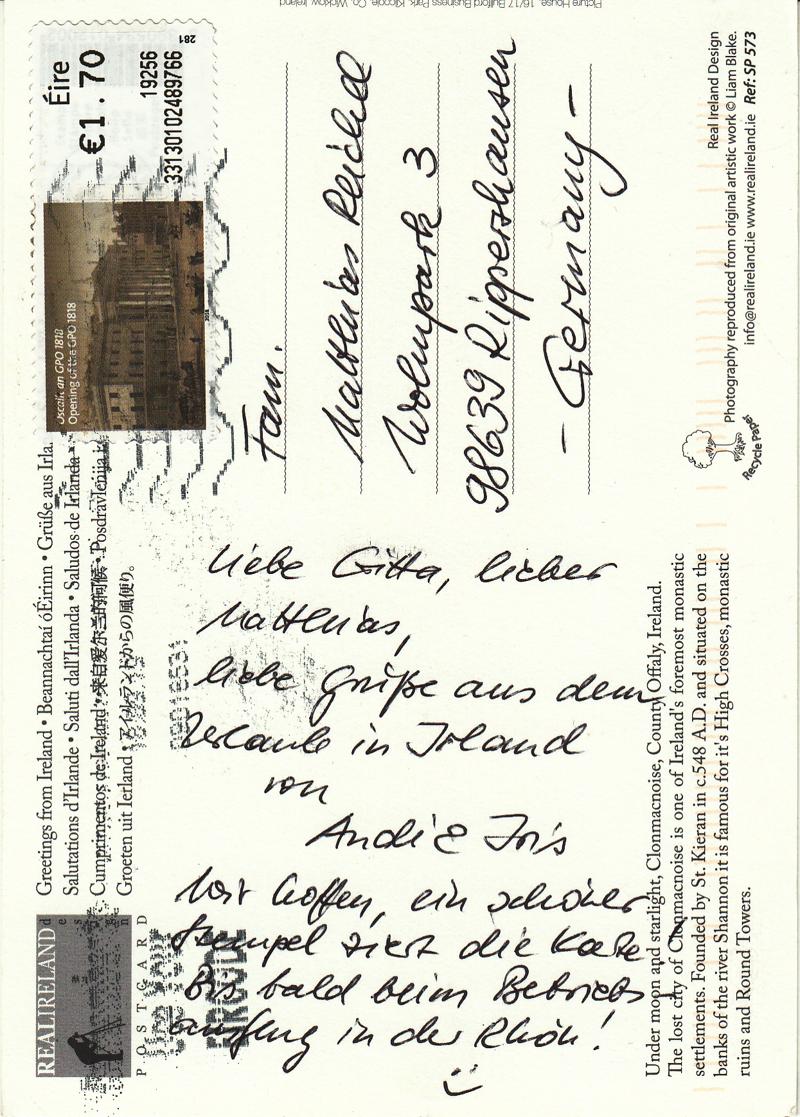 REALIRELAND
design
POSTCARD
Greetings from Ireland • Beannachtaí óÉirinn • Grüße aus Irla
Salutations d'Irlande • Saluti dall'Irlanda • Saludos de Irlanda •
Cumprimentos de Ireland • 来自爱尔兰的问候 • Posdravlenija
Groeten uit Ierland • アイルランドからの風便り。
Éire
€1.70
19256
33130102489766
281
Oscailt an GPO 1818
Opening of the GPO 1818
Liebe Gitta, lieber
Matthias,
liebe Grüße aus dem
Urlaub in Irland
von
Andi & Iris
Wir hoffen, ein schöner
Stempel ziert die Karte.
Bis bald beim Betriebs
ausflug in der Rhön!
Fam.
Matthias Reichel
Wohnpark 3
98639 Rippershausen
- Germany -
Under moon and starlight, Clonmacnoise, County Offaly, Ireland.
The lost city of Clonmacnoise is one of Ireland's foremost monastic
settlements. Founded by St. Kieran in c.548 A.D. and situated on the
banks of the river Shannon it is famous for it's High Crosses, monastic
ruins and Round Towers.
Recycle Paper
Real Ireland Design
Photography reproduced from original artistic work © Liam Blake.
info@realireland.ie www.realireland.ie Ref: SP 573
Picture House, 16/17 Bullford Business Park, Kilcoole, Co. Wicklow, Ireland